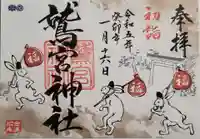 奉拝
初詣
令和五年
癸卯年
一月十六日
鷲宮神社
福
福
福